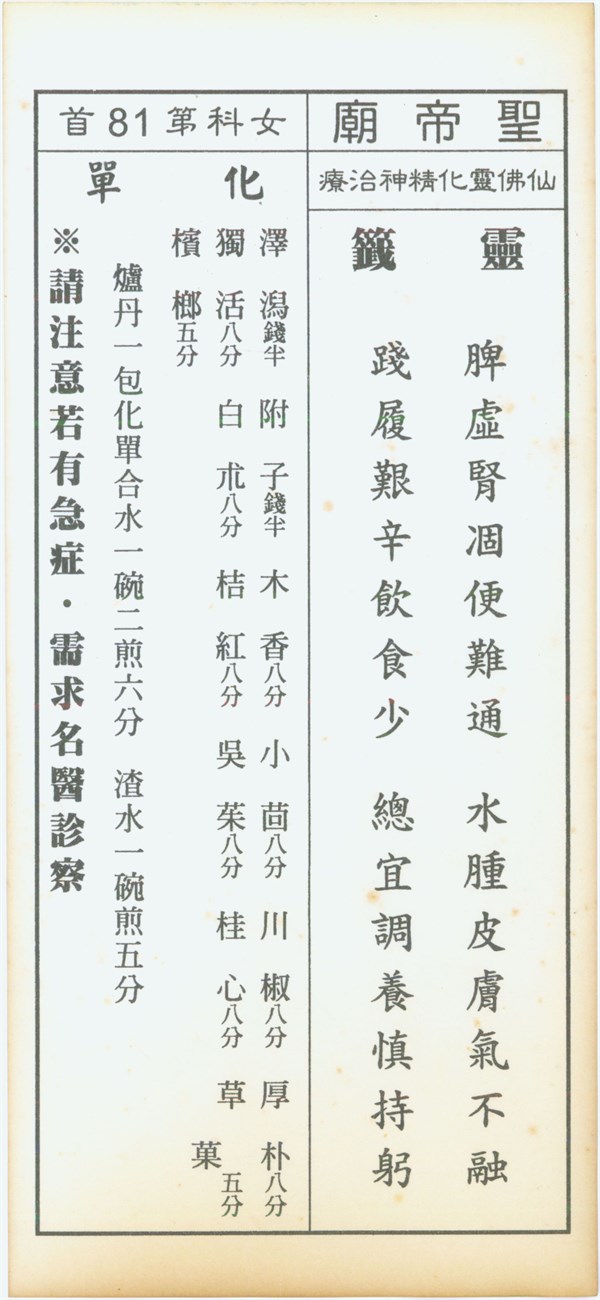 聖帝廟
仙佛靈化精神治療
靈籤
脾虛腎凅便難通 水腫皮膚氣不融
踐履艱辛飲食少 總宜調養慎持躬
女科第81首
化單
澤潟錢半 附子錢半 木香八分 小茴八分 川椒八分 厚朴八分
獨活八分 白朮八分 桔紅八分 吳茱八分 桂心八分 草菓五分
檳榔五分
爐丹一包化單合水一碗二煎六分 渣水一碗煎五分
※請注意若有急症．需求名醫診察